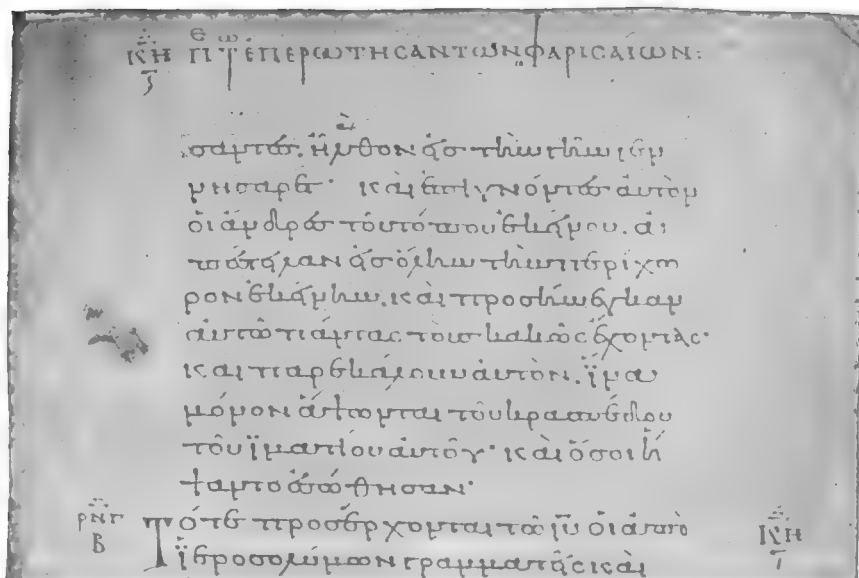 ΚΗ ΠΕΡΙ ΤΩΝ ἘΠΕΡΩΤΗΣΑΝΤΩΝ ΦΑΡΙΣΑΊΩΝ:
σαντες. ἦλθον εἰς τὴν γῆν γεν
νησαρέτ· καὶ ἐπιγνόντες αὐτὸν
οἱ ἄνδρες τοῦ τόπου ἐκείνου. ἀ
πέστειλαν εἰς ὅλην τὴν περίχω
ρον ἐκείνην. καὶ προσήνεγκαν
αὐτῶ πάντας τοὺς κακῶς ἔχοντας·
καὶ παρεκάλουν αὐτὸν. ἵνα
μόνον ἅψωνται τοῦ κρασπέδου
τοῦ ἱματίου αὐτοῦ· καὶ ὅσοι ἥ
ψαντο ἐσώθησαν·
ΡΝΓ Τότε προσέρχονται τῶ ιυ οἱ ἀπὸ ΚΗ
Β ἱεροσολύμων γραμματεῖς καὶ